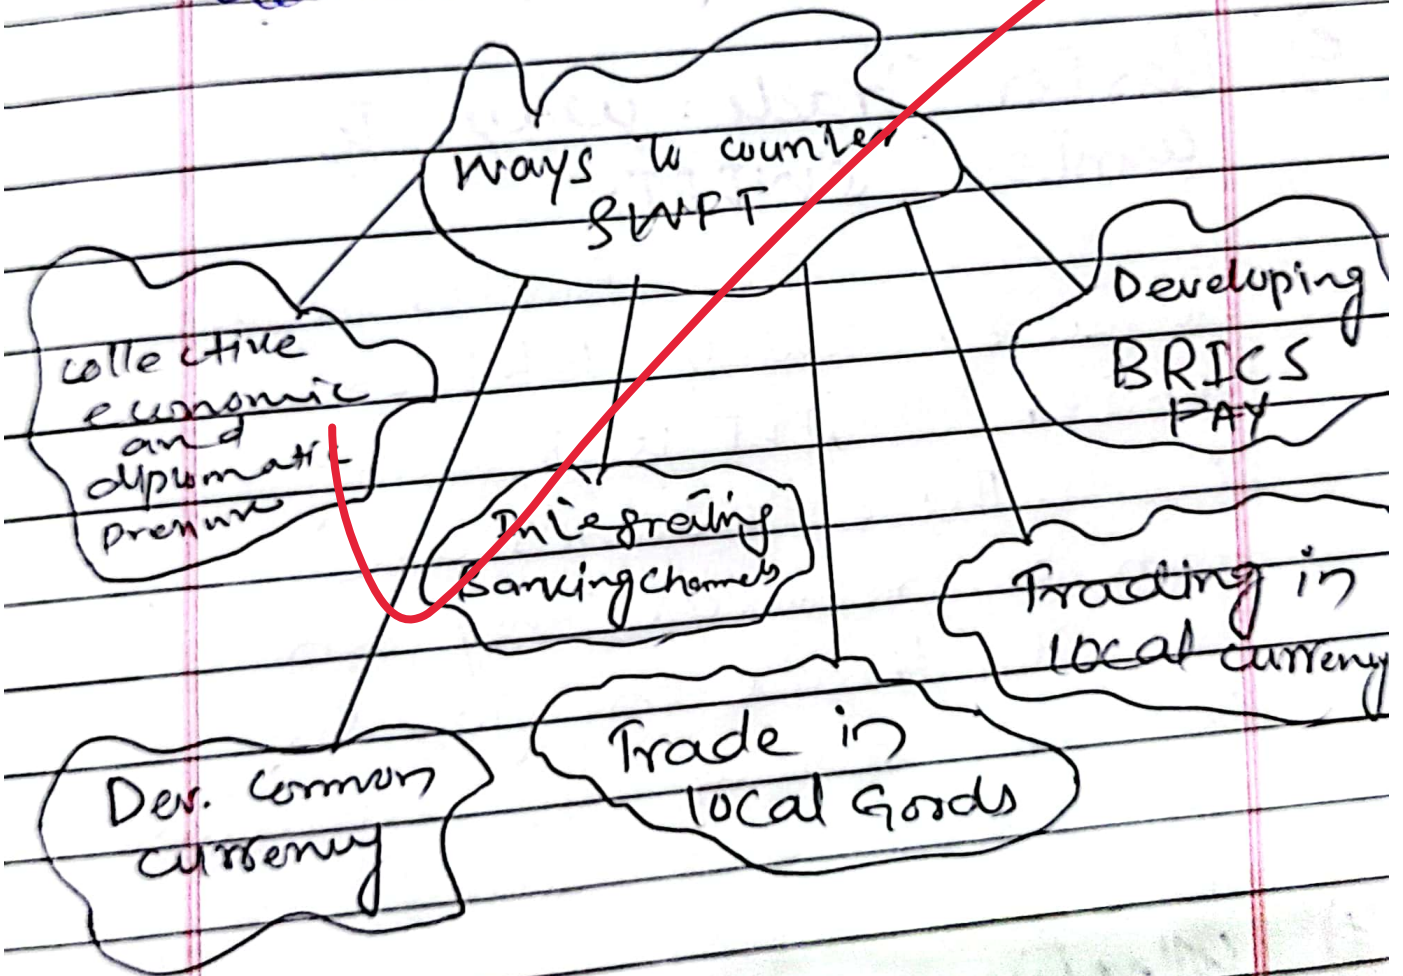 Ways to counter
SWPT
collective
economic
and
diplomatic
pressure
Developing
BRICS
PAY
Integrating
Banking channels
Trading in
local currency
Trade in
local Goods
Dev. common
currency